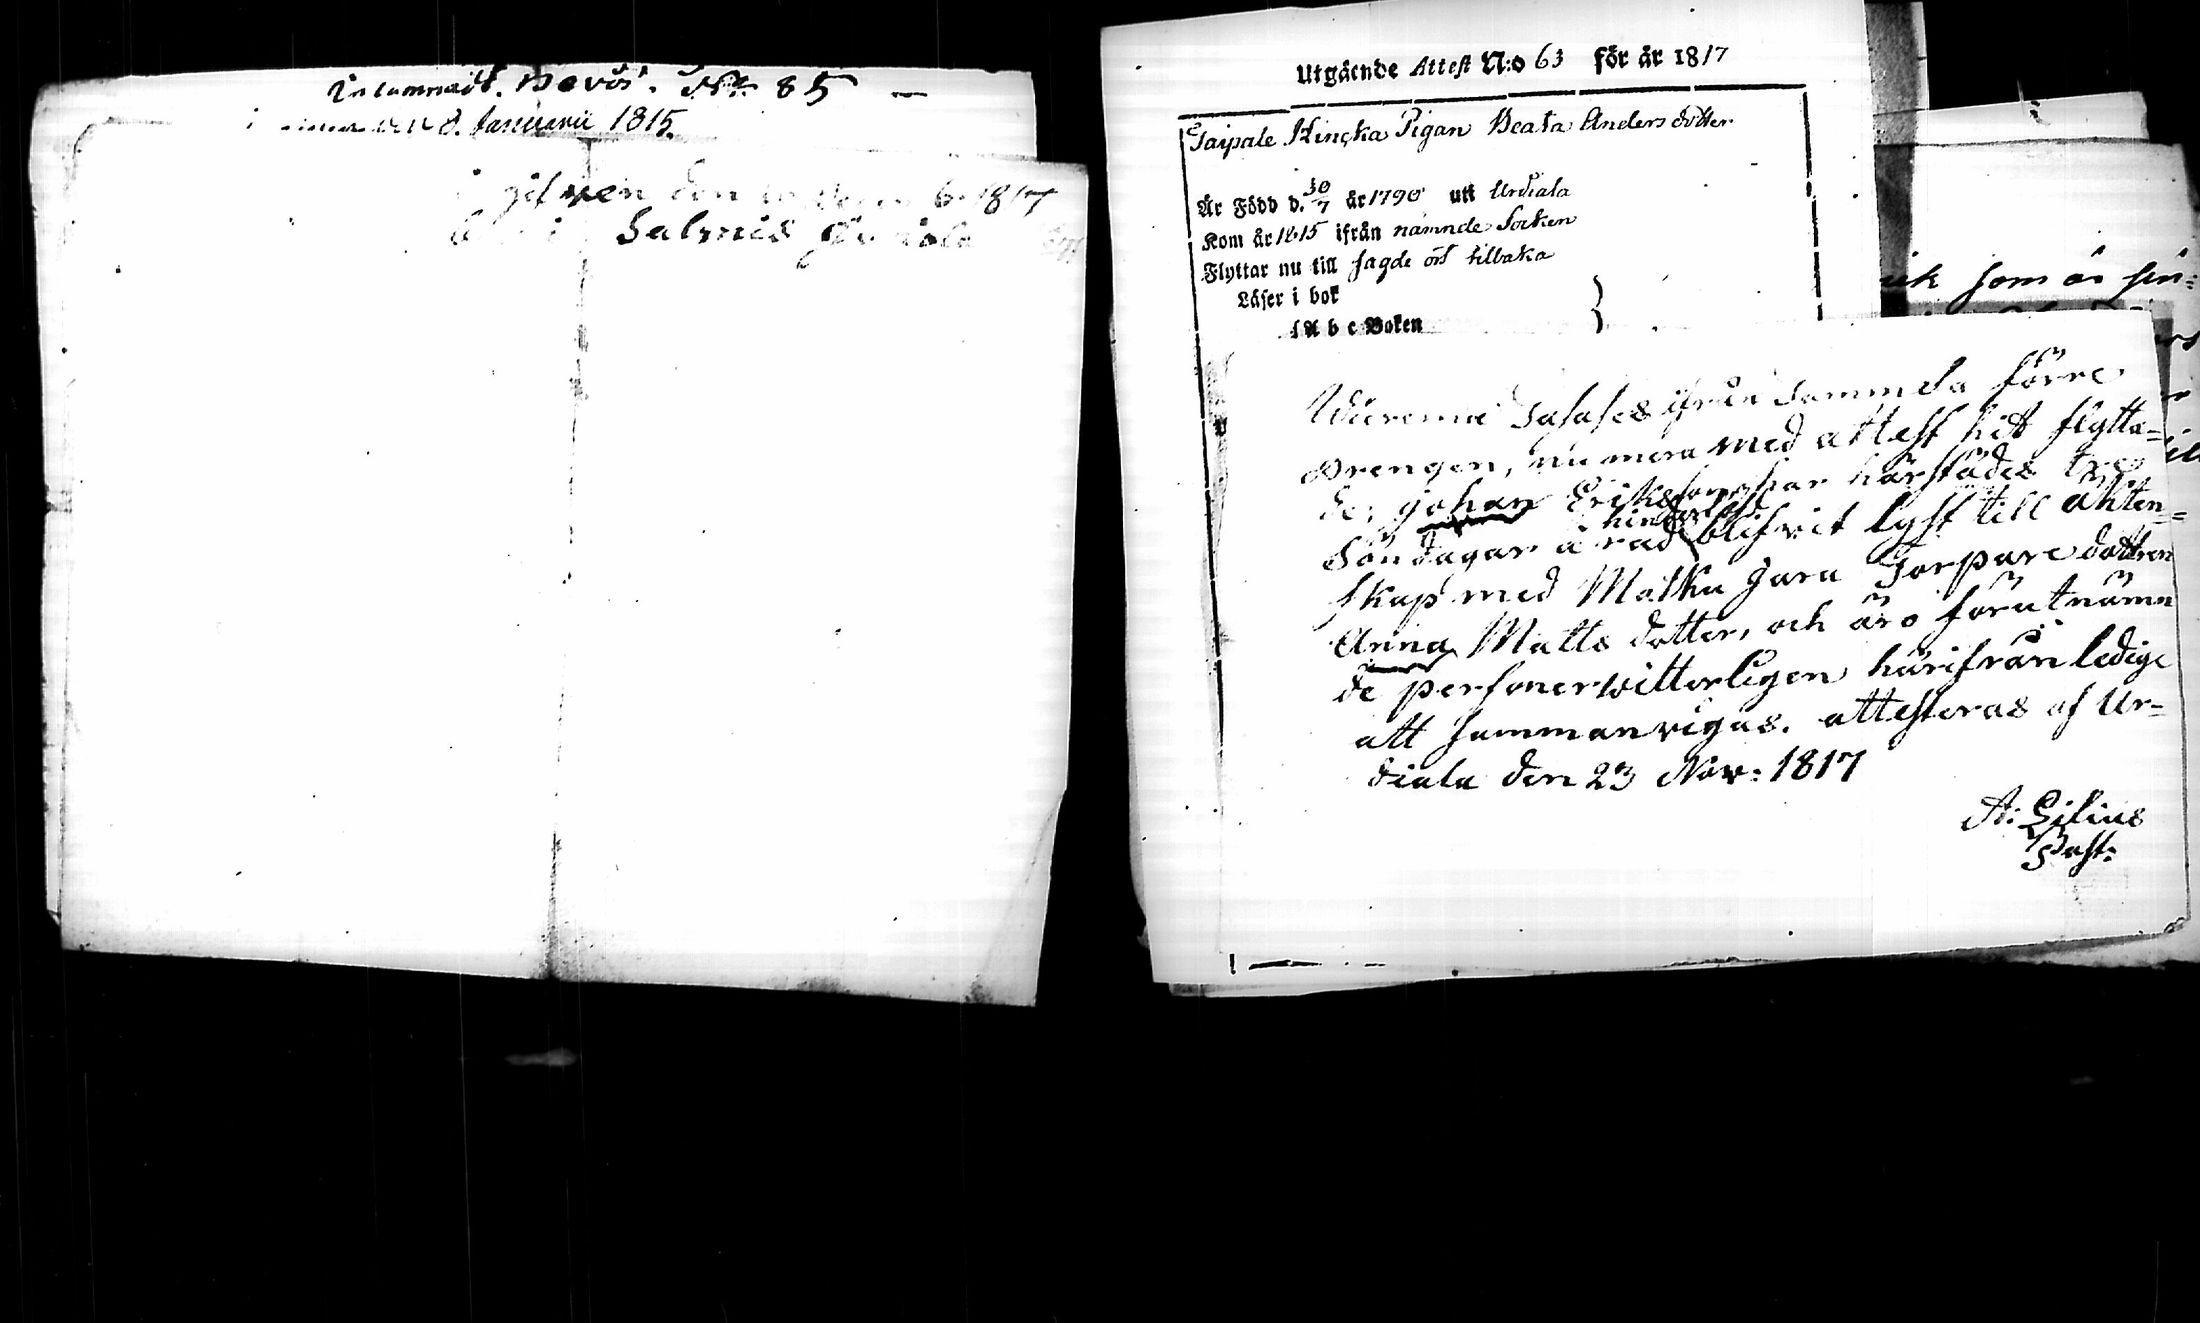 bevis. No 85 —
den 8. Januarii 1815.
gifven den 1817
Salmis
Utgående Attest N:o 63 för år 1817
Taipale Hincka Pigan Beata Andersdotter
Är Född d. 30/7 år 1790 uti Urdiala
Kom år 1815 ifrån nämnde Socken
Flyttar nu till sagde ort tilbaka
Läser i bok
i A b c Boken
uk som är sin=
ifrån Sammola förre
Drengen, nu mera med attest hit flytta=
de, Johan Eriksson, har härstädes tre
Söndagar å rad hinderlöst blifvit lyst till äkten=
skap med Matku Jara Torpare dottren
Anna Matts dotter, och äro förutnämn
de personer witterligen härifrån ledige
att sammanvigas. attesteras af Ur=
diala den 23 Nov: 1817
A: Lilius
Past: